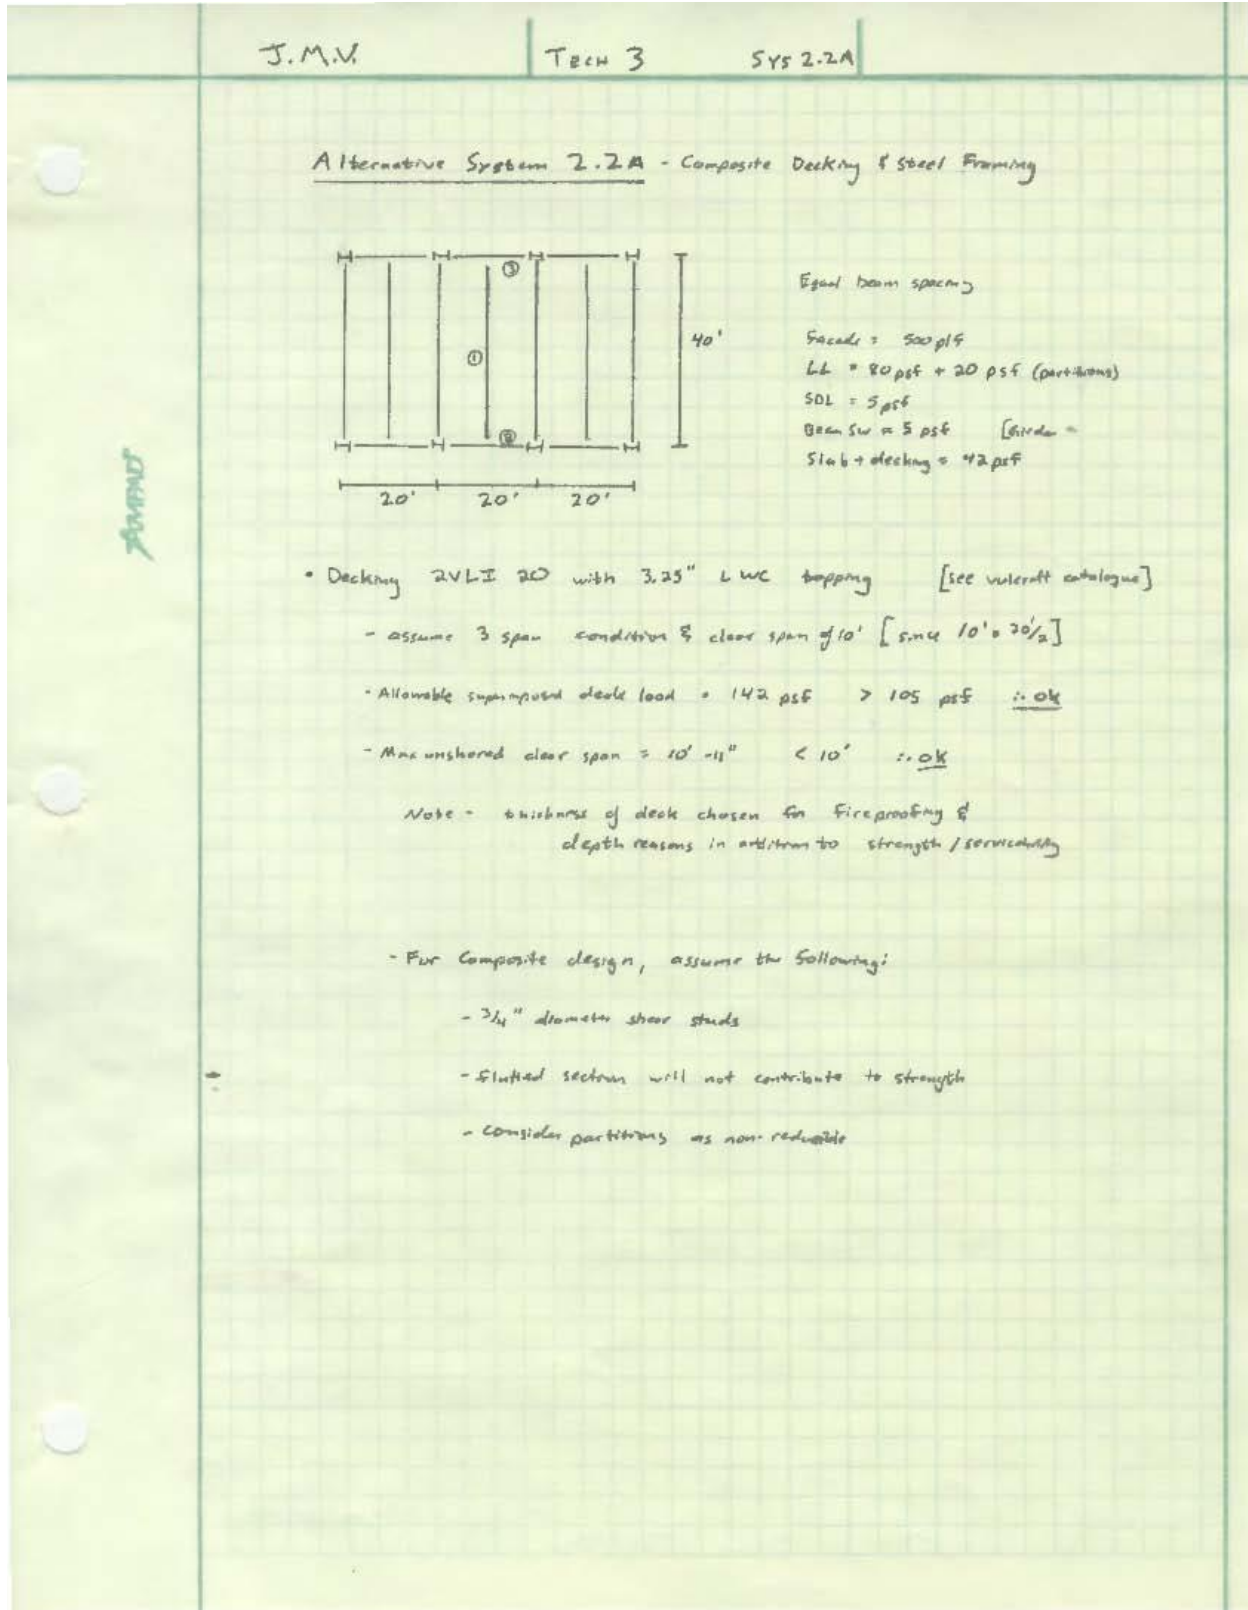 J.M.V. TECH 3 SYS 2.2A
Alternative System 2.2A - Composite Decking & Steel Framing
③
①
②
40'
20' 20' 20'
Equal beam spacing
Facade = 500 plf
LL = 80 psf + 20 psf (partitions)
SDL = 5 psf
Beam SW ≈ 5 psf [Girder =
Slab + decking = 42 psf
AMPAD
• Decking 2VLI 20 with 3.25" LWC topping [see vulcraft catalogue]
- assume 3 span condition & clear span of 10' [since 10' = 20'/2]
- Allowable superimposed deck load = 142 psf > 105 psf ∴ ok
- Max unshored clear span = 10'-11" < 10' ∴ ok
Note - thickness of deck chosen for fireproofing &
depth reasons in addition to strength / servicability
- For Composite design, assume the following:
- 3/4" diameter shear studs
- fluted section will not contribute to strength
- consider partitions as non-reducible